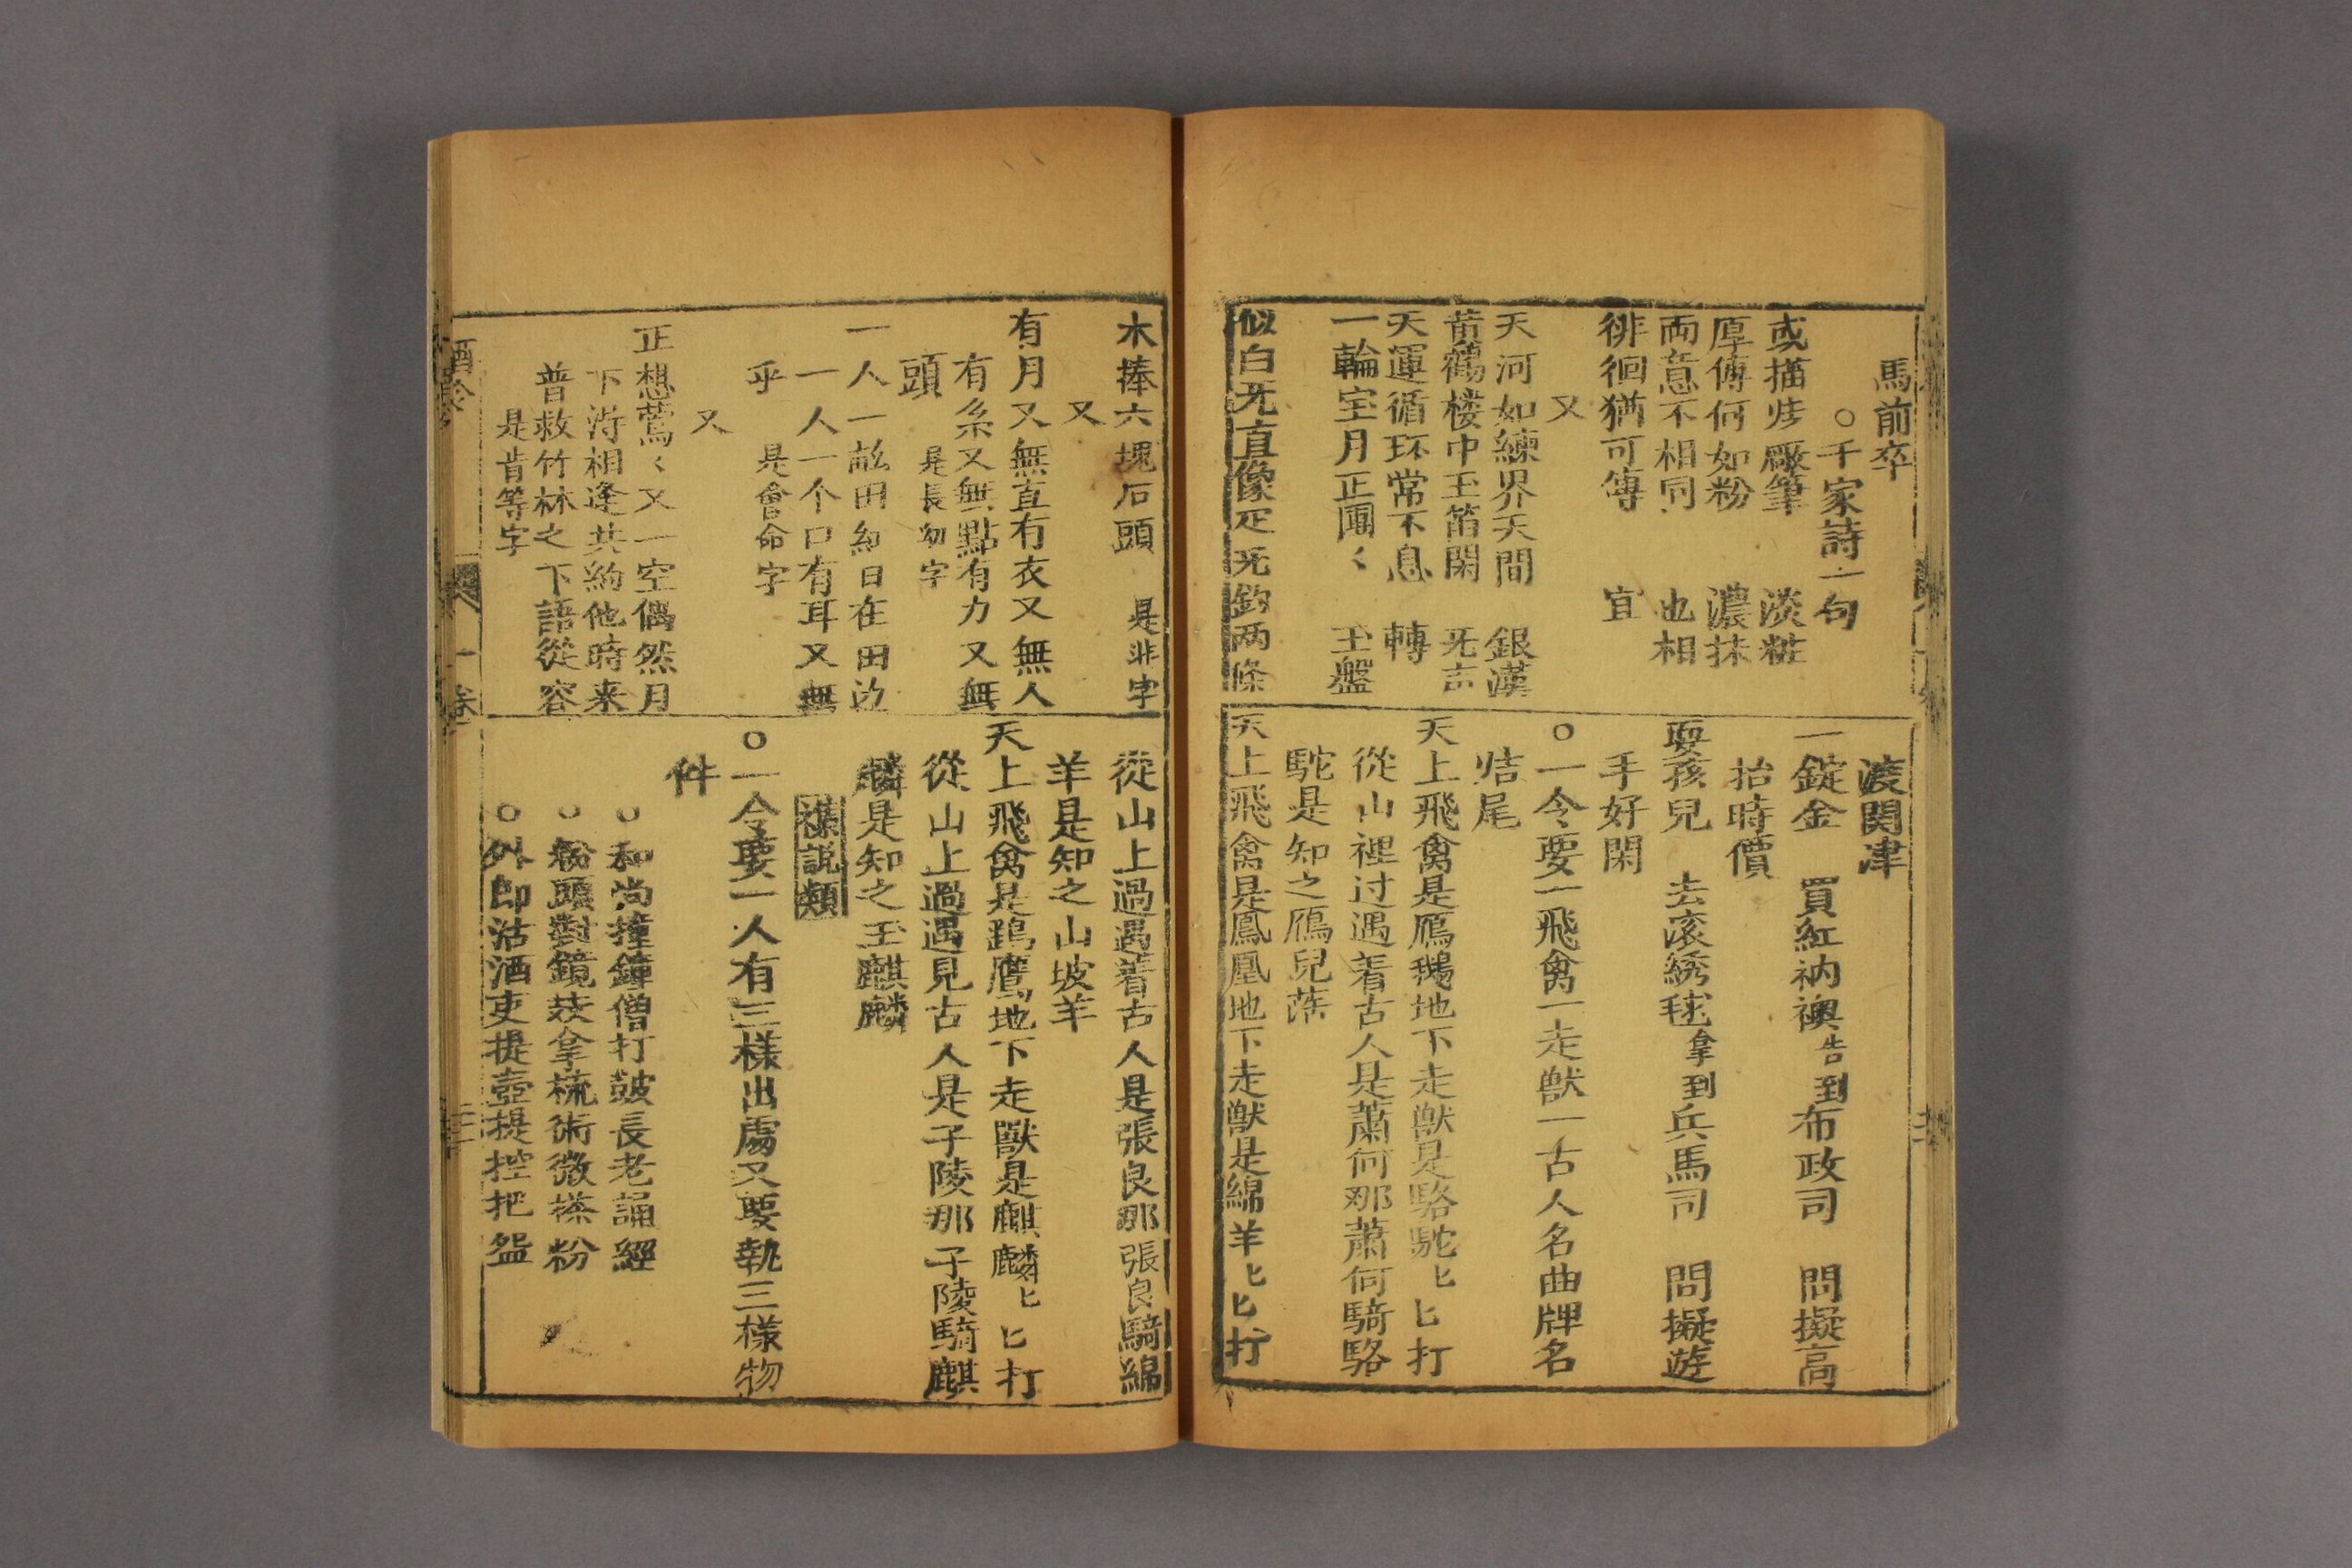 馬前卒
○千家詩一句
或描 廠筆 淡粧
厚傅何如粉 濃抹
両意不相同 也相
徘徊猶可傳 宜
又
天河如練界天間 銀漢
黄鶴楼中玉笛閑 旡言
天運循环常不息 轉
一輪宝月正團〻 玉盤
似白旡直像疋旡鈎两條
渡関津
一錠金 買紅衲襖告到布政司 問擬高
抬時價
耍孩兒 去滚綉毬拿到兵馬司 問擬遊
手好閑
○一令要一飛禽一走獣一古人名曲牌名
结尾
天上飛禽是鴈鵝地下走獣是駱駝匕匕打
從山裡过遇着古人是蕭何那蕭何騎駱
駝是知之鴈兒落
天上飛禽是鳳凰地下走獣是綿羊匕匕打
木捧六塊石頭 是非字
又
有月又無直有衣又無人
有糸又無點有力又無
頭 是長幼字
一人一 田 日在田边
一人一个口有耳又無
乎 是會命字
又
正想鶯〻又一空偶然月
下淂相逢共約他時来
普救竹林之下語從容
是肯等字
酒令 一卷
從山上過遇着古人是張良那張良騎綿
羊是知之山坡羊
天上飛禽是 鷹地下走獸是麒麟匕匕打
從山上過遇見古人是子陵那子陵騎麒
麟是知之玉麒麟
襍説類
○一令要一人有三様出處又要執三様物
件
○和尚撞鐘僧打皷長老誦經
○粉頭對鏡 拿梳術微搽粉
○外郎沽酒吏提壺提控把盤